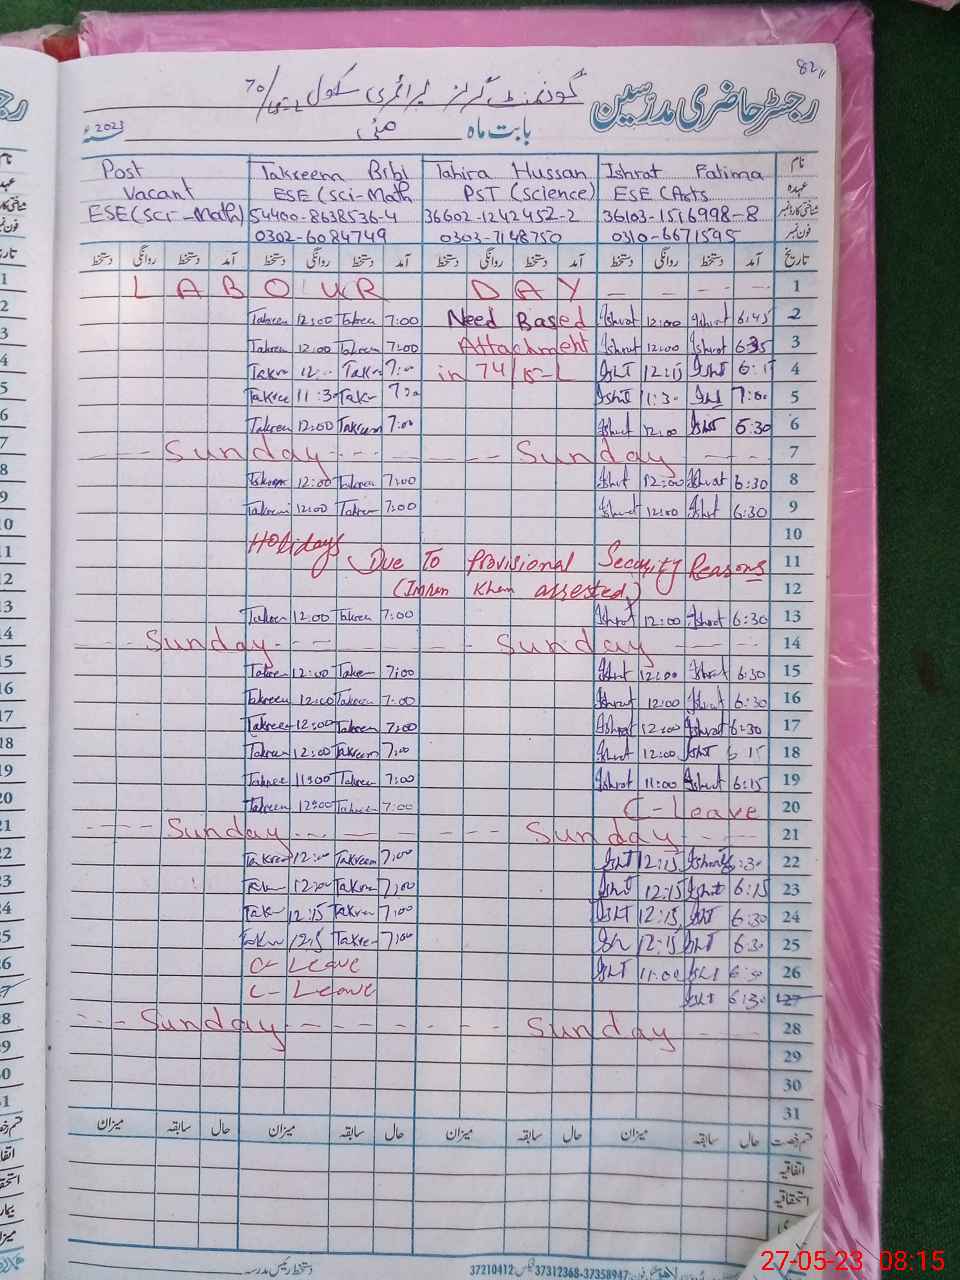 82
رجسٹر حاضری مدرسین گورنمنٹ گرلز پرائمری سکول 70/
بابت ماہ مئی 2023ء
نام Ishrat Fatima Tahira Hussan Takreem Bibi Post
عہدہ ESE (Arts PST (Science) ESE (Sci-Math Vacant
شناختی کارڈ نمبر 36103-1516998-8 36602-1242452-2 54400-8638536-4 ESE (Sci-Math)
فون نمبر 0310-6671595 0303-7148750 0302-6084749
تاریخ آمد دستخط روانگی دستخط آمد دستخط روانگی دستخط آمد دستخط روانگی دستخط آمد دستخط روانگی دستخط
1 LABOUR DAY
2 6:45 Ishrat 12:00 Ishrat Need Based 7:00 Takreen 12:00 Takreen
3 Ishrat 12:00 Ishrat Attachment 7:00 Takreen 12:00 Takreen
4 Isht 12:15 Isht in 74/15-L 7:00 Takr Takr
5 7:00 Isht 11:30 Isht Takr 11:30 Takree
6 Isht 12:00 Ishrat 7:00 Takreem 12:00 Takreen
7 Sunday Sunday
8 6:30 Ishrat 12:00 Ishrat 7:00 Takreen 12:00 Takreem
9 6:30 Ishrat 12:00 Ishrat 7:00 Takreen 12:00 Takreem
10 Holidays
11 Due To Provisional Security Reasons
12 (Imran Khan arrested)
13 6:30 Ishrat 12:00 Ishrat 7:00 Takreen 12:00 Takreen
14 Sunday Sunday
15 6:30 Ishrat 12:00 Ishrat 7:00 Takreen 12:00 Takreen
16 6:30 Ishrat 12:00 Ishrat 7:00 Takreen 12:00 Takreen
17 6:30 Ishrat 12:00 Ishrat 7:00 Takreen 12:00 Takreen
18 6:15 Isht 12:00 Ishrat 7:00 Takreem 12:00 Takreen
19 6:15 Ishrat 11:00 Ishrat 7:00 Takreen 11:00 Takree
20 C-Leave 7:00 Takreen 12:00 Takreen
21 Sunday Sunday
22 6:30 Ishrat 12:15 Isht 7:00 Takreem 12:00 Takreem
23 6:15 Ishrat 12:15 Isht 7:00 Takree 12:00 Takr
24 6:30 Isht 12:15 Isht 7:00 Takree 12:15 Takr
25 6:30 Isht 12:15 Ish 7:00 Takree 12:15 Takr
26 Isht 11:00 Isht C-Leave
27 6:30 Isht C-Leave
28 Sunday Sunday
29
30
31
قسم رخصت حال سابقہ میزان حال سابقہ میزان حال سابقہ میزان حال سابقہ میزان
اتفاقیہ
استحقاقیہ
دستخط رئیس مدرسہ
37210412 37312368-37358947
27-05-23 08:15